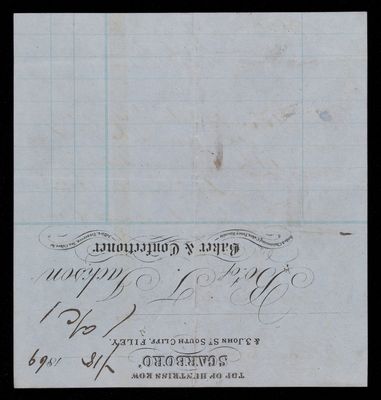 TOP OF HUNTRISS ROW
SCARBORO'
7/18 1869
& 3 JOHN ST SOUTH CLIFF, FILEY.
Bot of T. Jackson
Baker & Confectioner